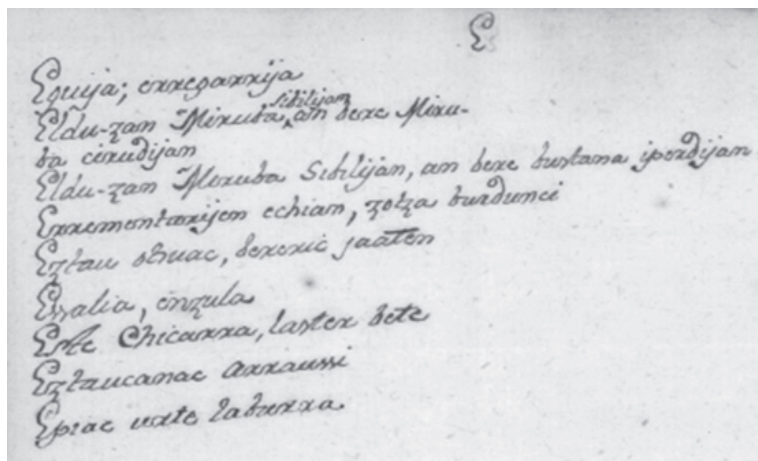 E
Eguija; erregarrija
Eldu-zan Miruba sibilijan, an bere Miru-
ba cirudijan
Eldu-zan Miruba Sibilijan, an bere bustana iperdijan
Errementarijen echian, zotza burdunci
Eztau otsuac, bereric jaaten
Essalia, enzula
Este Chicarra, laster bete
Eztaucanac arraussi
Epiac urte laburra